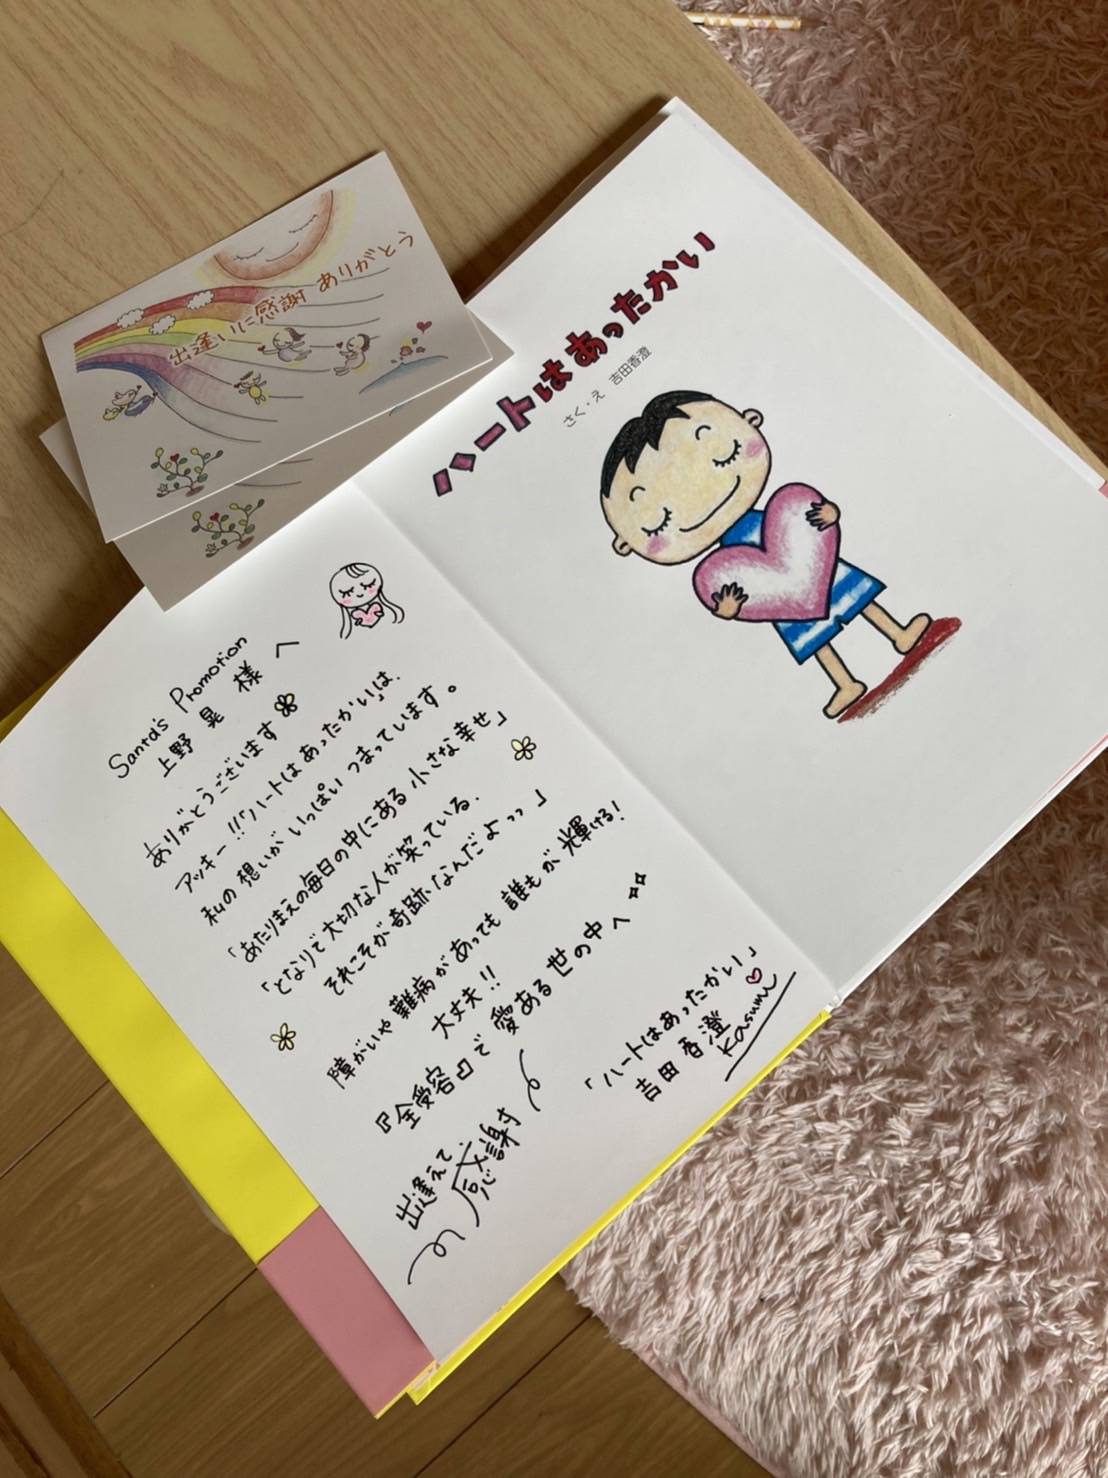 出逢いに感謝 ありがとう
ハートはあったかい
さく・え 吉田香澄
Santa's Promotion
上野 晃 様 へ
ありがとうございます
アッキー!!「ハートはあったかい」は、
私の想いがいっぱいつまっています。
「あたりまえの毎日の中にある小さな幸せ」
「となりで大切な人が笑っている。
それこそが奇跡なんだよッッ」
障がいや難病があっても誰もが輝ける!
大丈夫!!
『全受容』で愛ある世の中へ
出逢えて
感謝す
「ハートはあったかい」
吉田香澄
Kasumi